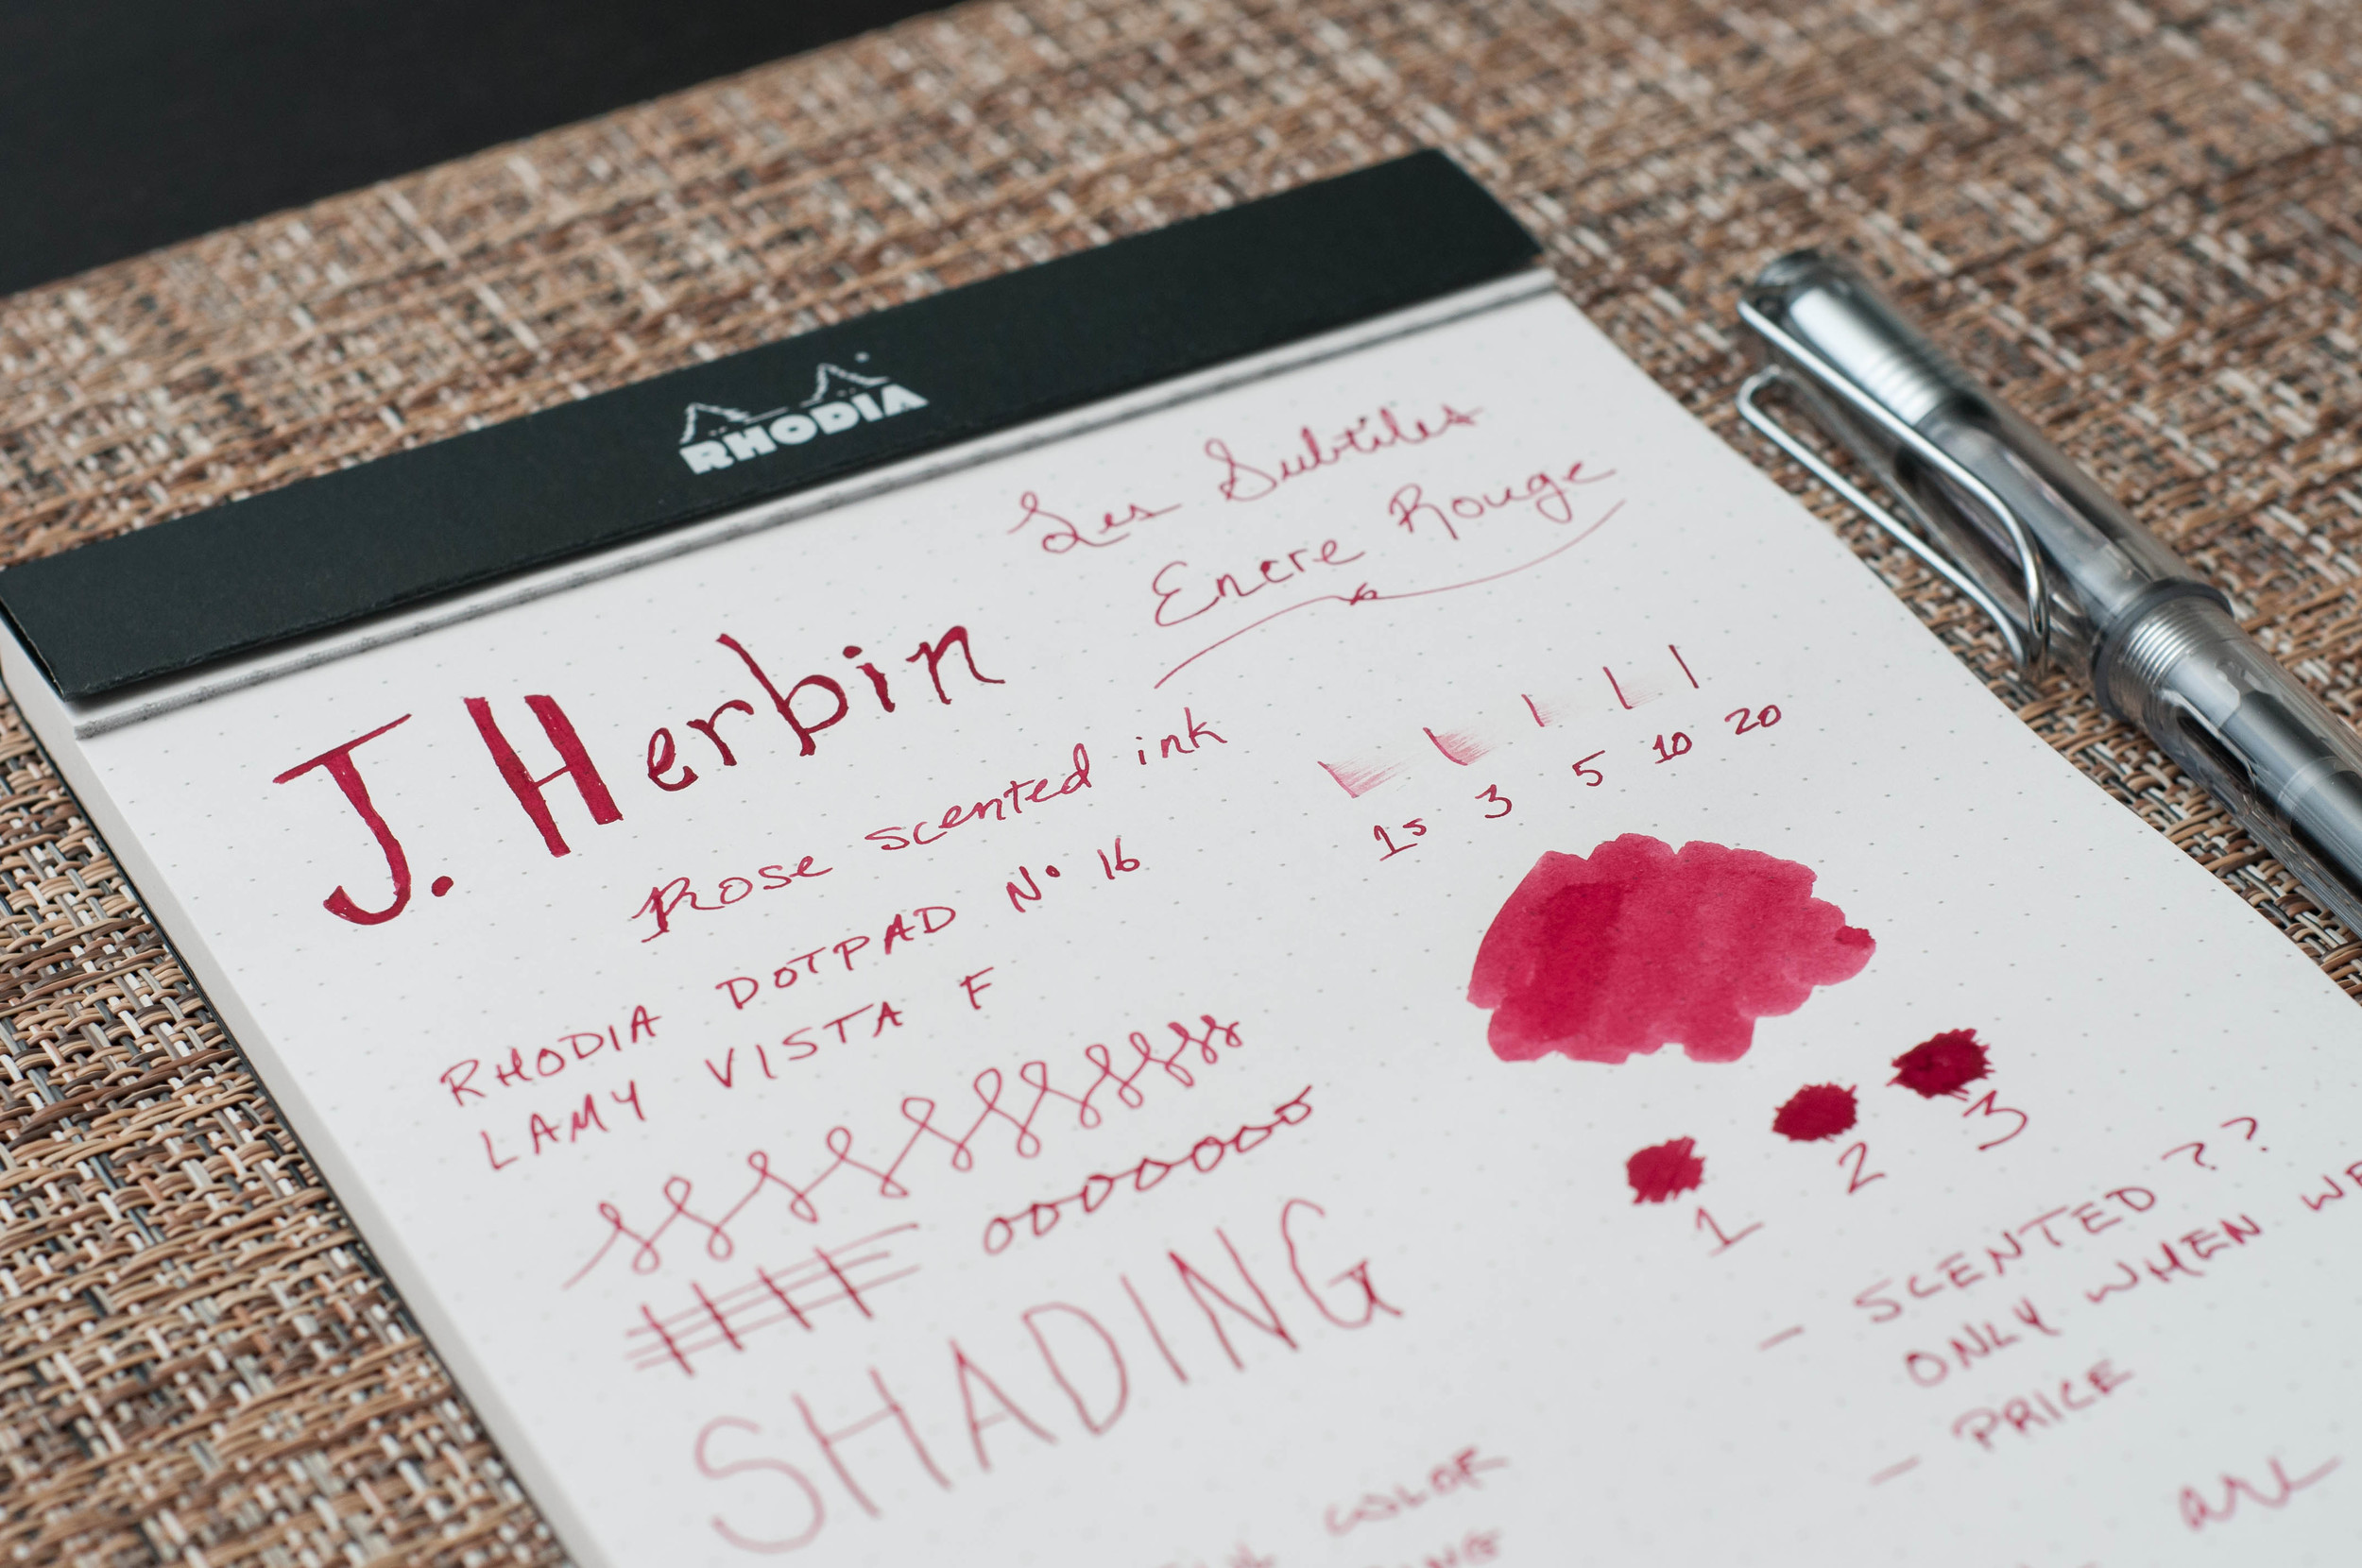 RHODIA
Les Subtiles
Encre Rouge
J. Herbin
Rose scented ink
RHODIA DOTPAD No 16
LAMY VISTA F
1s 3 5 10 20
1 2 3
SHADING
- SCENTED ??
ONLY WHEN
- PRICE
COLOR
are